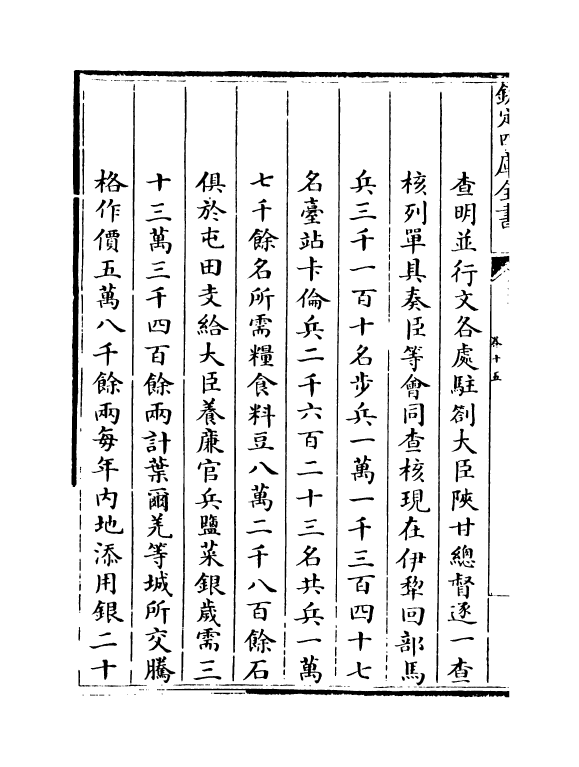 欽定四庫全書
卷十五
查明並行文各處駐劄大臣陝甘總督逐一查
核列單具奏臣等會同查核現在伊犂回部馬
兵三千一百十名步兵一萬一千三百四十七
名臺站卡倫兵二千六百二十三名共兵一萬
七千餘名所需糧食料豆八萬二千八百餘石
俱於屯田支給大臣養廉官兵鹽菜銀歲需三
十三萬三千四百餘兩計葉爾羌等城所交騰
格作價五萬八千餘兩每年内地添用銀二十